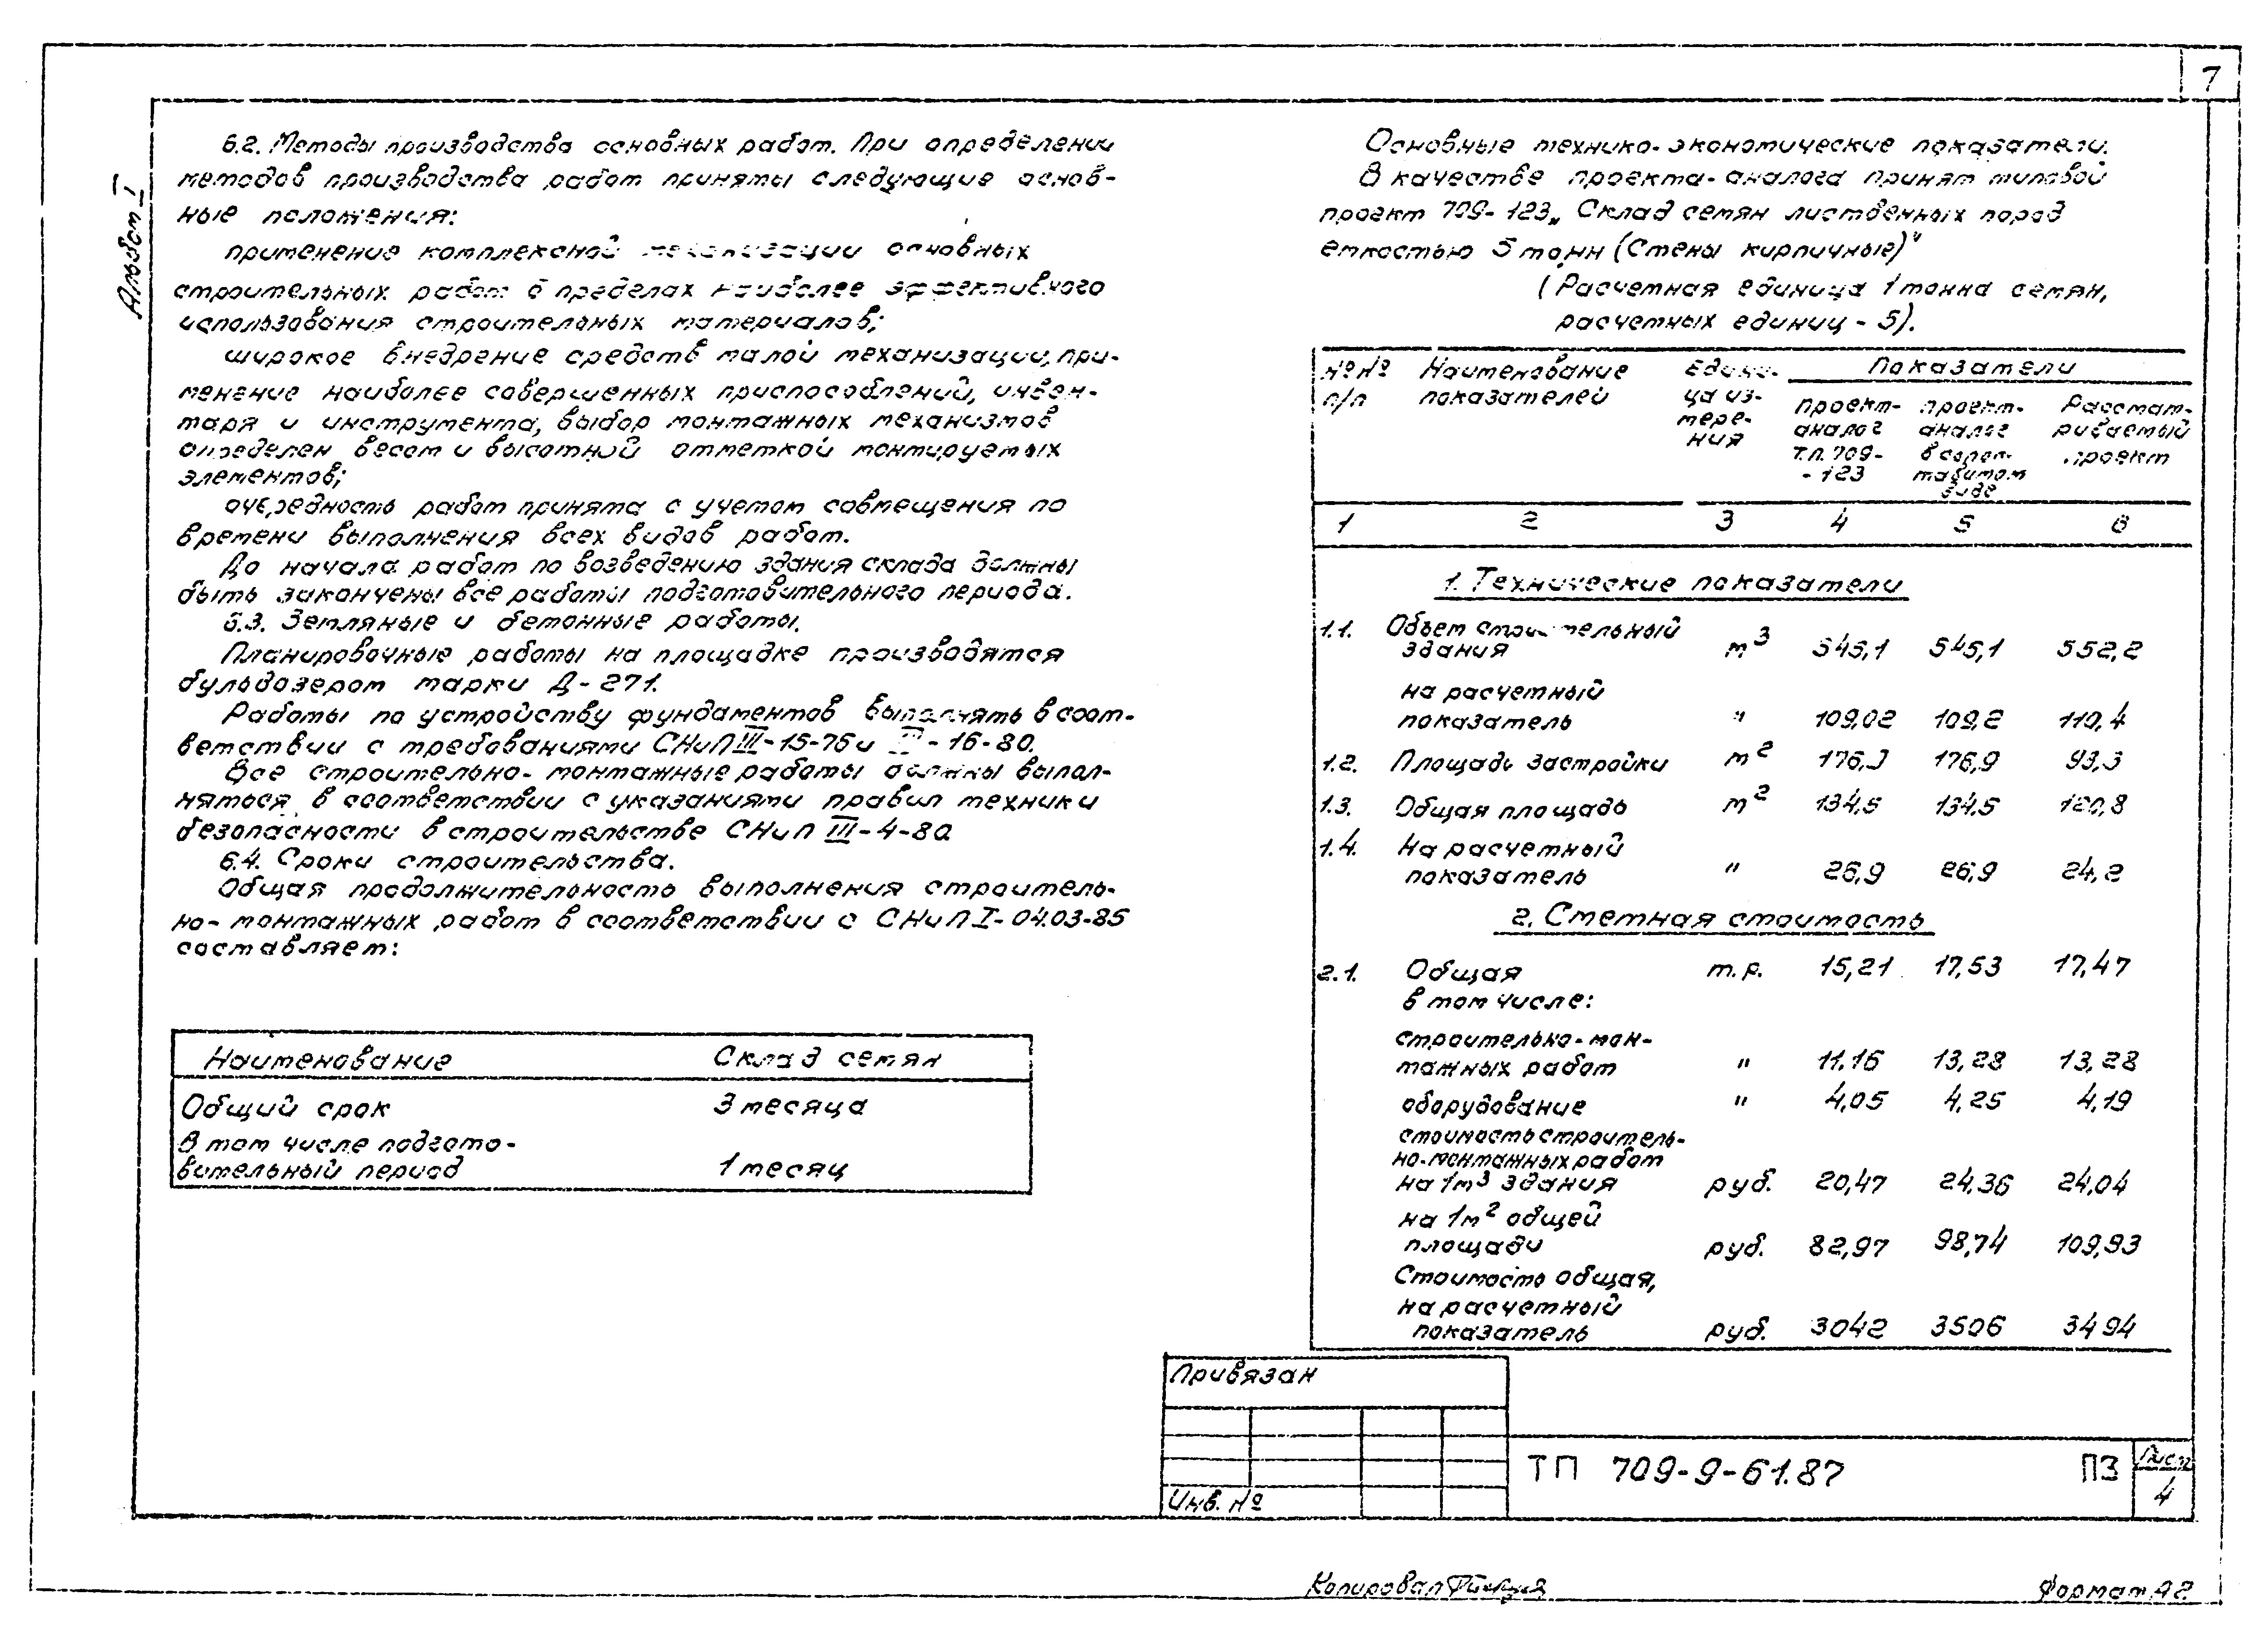 7
Альбом I
6.2. Методы производства основных работ. При определении
методов производства работ приняты следующие основ-
ные положения:
применение комплексной механизации основных
строительных работ в пределах наиболее эффективного
использования строительных материалов;
широкое внедрение средств малой механизации, при-
менение наиболее совершенных приспособлений, инвен-
таря и инструмента, выбор монтажных механизмов
определен весом и высотной отметкой монтируемых
элементов;
очередность работ принята с учетом совмещения по
времени выполнения всех видов работ.
До начала работ по возведению здания склада должны
быть закончены все работы подготовительного периода.
6.3. Земляные и бетонные работы.
Планировочные работы на площадке производятся
бульдозером марки Д-271.
Работы по устройству фундаментов выполнять в соот-
ветствии с требованиями СНиП III-15-76 и - 16-80.
Все строительно-монтажные работы должны выпол-
няться в соответствии с указаниями правил техники
безопасности в строительстве СНиП III-4-80
6.4. Сроки строительства.
Общая продолжительность выполнения строитель-
но-монтажных работ в соответствии с СНиП I-04.03-85
составляет:
Наименование Склад семян
Общий срок 3 месяца
В том числе подгото-
вительный период 1 месяц
Основные технико-экономические показатели.
В качестве проекта-аналога принят типовой
проект 709-123 „Склад семян лиственных пород
емкостью 5 тонн (Стены кирпичные)"
(Расчетная единица 1 тонна семян,
расчетных единиц - 5).
№№ п/п Наименование показателей Едини- ца из- мере- ния Показатели
проект- аналог Т.П. 709- - 123 проект- аналог в сопос- тавимом виде Рассмат- риваемый проект
1 2 3 4 5 6
1. Технические показатели
1.1. Объем строительный
здания м³ 545,1 545,1 552,2
на расчетный
показатель " 109,02 109,2 110,4
1.2. Площадь застройки м² 176,9 176,9 93,3
1.3. Общая площадь м² 134,5 134,5 120,8
1.4. На расчетный
показатель " 26,9 26,9 24,2
2. Сметная стоимость
2.1. Общая т.р. 15,21 17,53 17,47
в том числе:
строительно-мон-
тажных работ " 11,16 13,28 13,28
оборудование " 4,05 4,25 4,19
стоимость строитель-
но-монтажных работ
на 1м³ здания руб. 20,47 24,36 24,04
на 1м² общей
площади руб. 82,97 98,74 109,93
Стоимость общая,
на расчетный
показатель руб. 3042 3506 3494
Привязан
Инв. №
ТП 709-9-61.87 ПЗ
Лист
4
Копировал
Формат А2